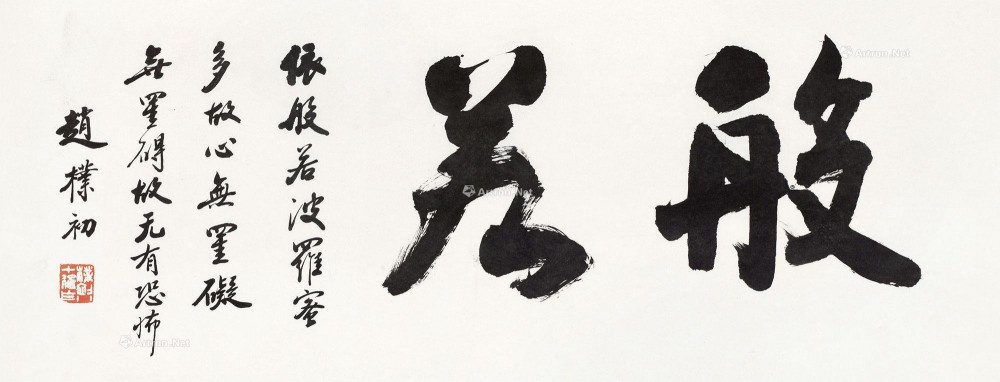 般若
依般若波羅蜜
多故心無罣礙
無罣碍故无有恐怖
趙樸初
Artron.Net
Artron.Net
Artron.Net